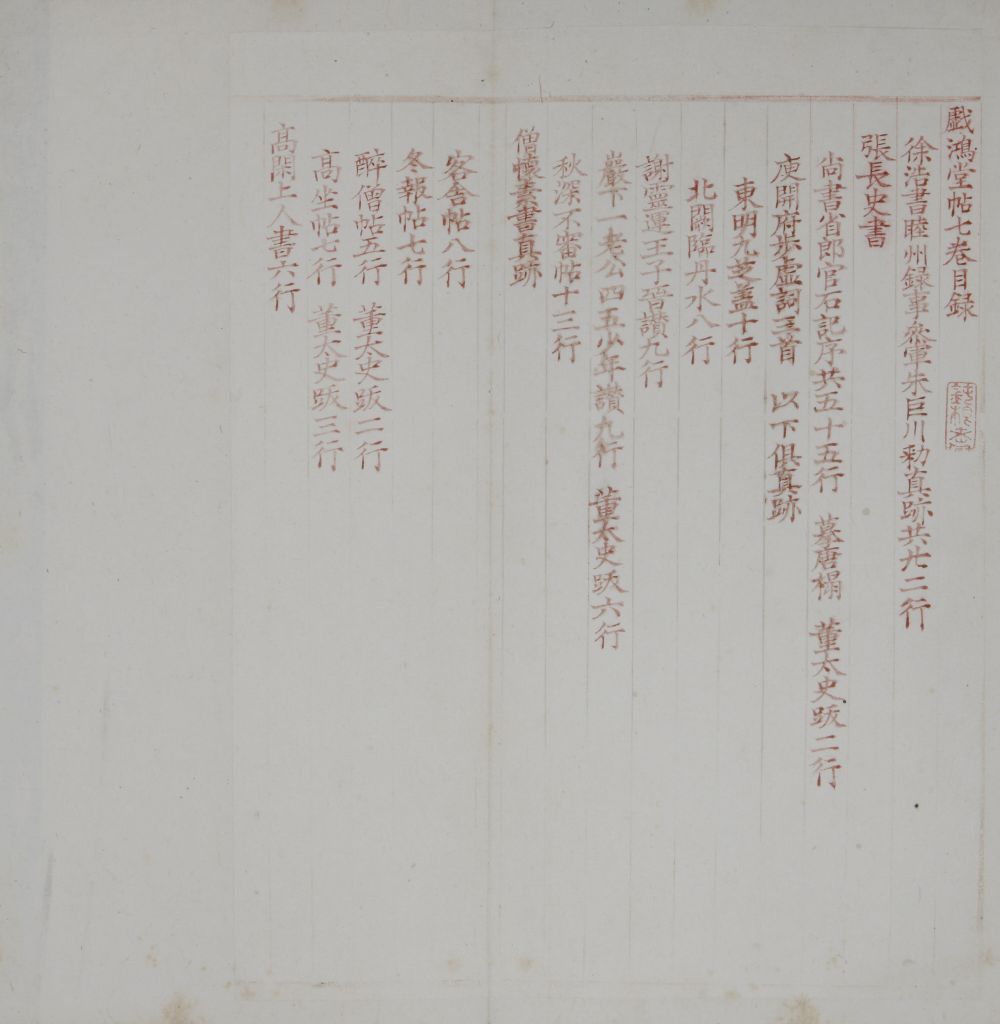 戲鴻堂帖七卷目録
徐浩書睦州録事叅軍朱巨川勅真跡共廿二行
張長史書
尚書省郎官石記序共五十五行 摹唐榻 董太史跋二行
庾開府步虛詞三首 以下俱真跡
東明九芝盖十行
北闕臨丹水八行
謝靈運王子晉讃九行
巖下一老公四五少年讃九行 董太史跋六行
秋深不審帖十三行
僧懷素書真跡
客舍帖八行
冬報帖七行
醉僧帖五行 董太史跋二行
髙坐帖七行 董太史跋三行
髙閑上人書六行